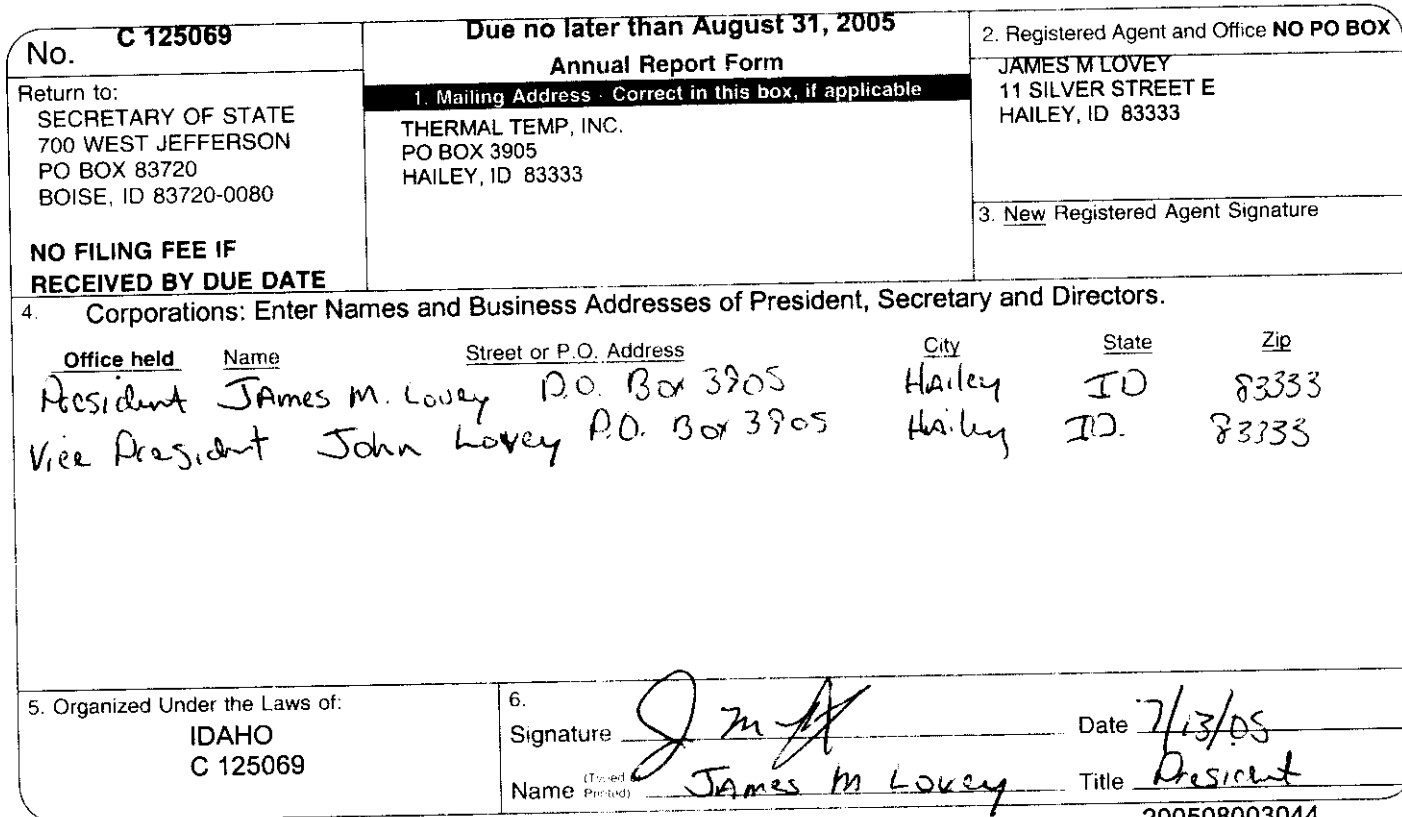 No. C 125069
Return to:
SECRETARY OF STATE
700 WEST JEFFERSON
PO BOX 83720
BOISE, ID 83720-0080
NO FILING FEE IF
RECEIVED BY DUE DATE
Due no later than August 31, 2005
Annual Report Form
1. Mailing Address - Correct in this box, if applicable
THERMAL TEMP, INC.
PO BOX 3905
HAILEY, ID 83333
2. Registered Agent and Office NO PO BOX
JAMES M LOVEY
11 SILVER STREET E
HAILEY, ID 83333
3. New Registered Agent Signature
4. Corporations: Enter Names and Business Addresses of President, Secretary and Directors.
Office held Name Street or P.O. Address City State Zip
President JAmes M. Lovey P.O. Box 3905 HAiley ID 83333
Vice President John Lovey P.O. Box 3905 HAiley ID. 83333
5. Organized Under the Laws of:
IDAHO
C 125069
6.
Signature Date 7/13/05
Name (Typed or Printed) JAmes M Lovey Title President
200508003044